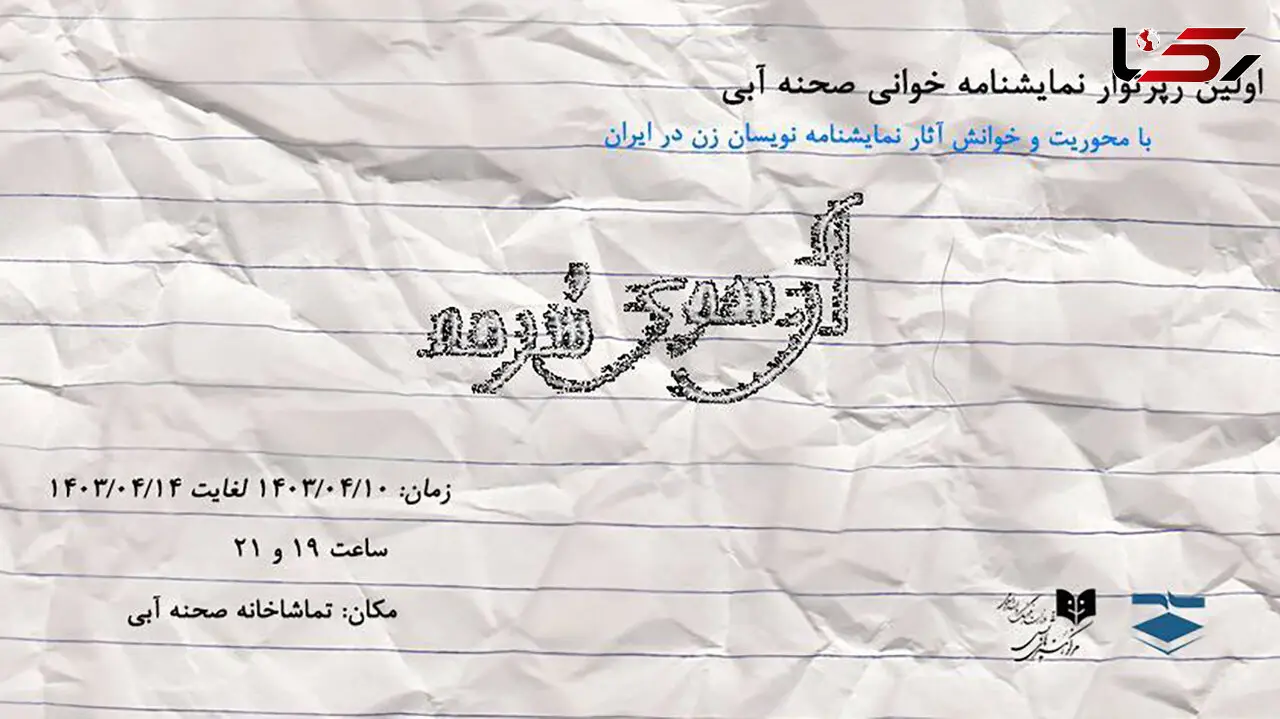 رکنا
اولین رپرتوار نمایشنامه خوانی صحنه آبی
با محوریت و خوانش آثار نمایشنامه نویسان زن در ایران
از سوی سُرمه
زمان: ۱۴۰۳/۰۴/۱۰ لغایت ۱۴۰۳/۰۴/۱۴
ساعت ۱۹ و ۲۱
مکان: تماشاخانه صحنه آبی